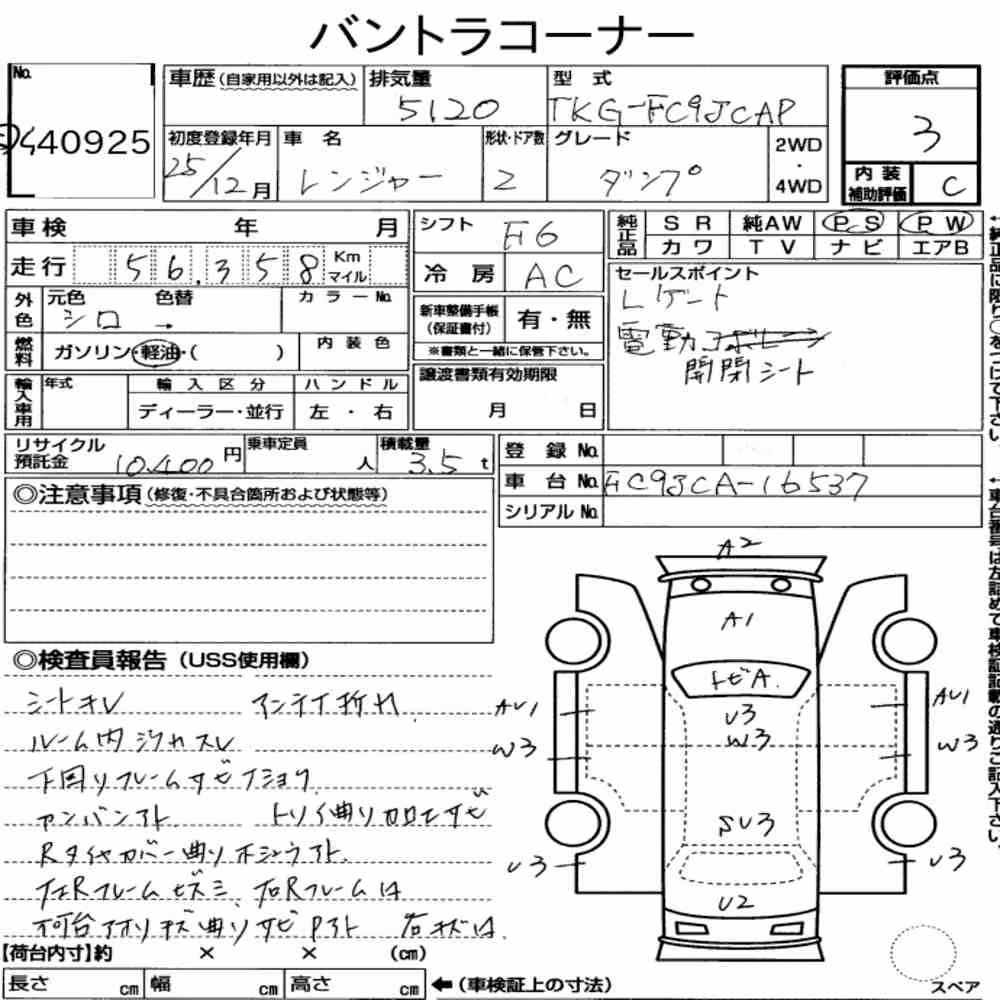 バントラコーナー
No. 440925
車歴(自家用以外は記入)
排気量 5120
型式 TKG-FC9JCAP
評価点 3
初度登録年月 25/12月
車名 レンジャー
形状・ドア数 2
グレード ダンプ
2WD・4WD
内装補助評価 C
車検 年 月
シフト F6
純正品 SR 純AW PS PW
カワ TV ナビ エアB
走行 56,358 Km マイル
冷房 AC
セールスポイント
Lゲート
電動コボレーン
開閉シート
外色 元色 シロ 色替 → カラーNo.
新車整備手帳(保証書付) 有・無
※書類と一緒に保管下さい。
燃料 ガソリン・軽油・( ) 内装色
譲渡書類有効期限
月 日
輸入車用 年式 輸入区分 ハンドル
ディーラー・並行 左・右
リサイクル預託金 10,400円
乗車定員 人
積載量 3.5t
登録No.
車台No. FC9JCA-16537
シリアルNo.
◎注意事項(修復・不具合箇所および状態等)
◎検査員報告(USS使用欄)
シートキレ
ルーム内
下回リフレームサビ
Rタイヤカバー曲リ
A2
A1
トビA
U3
W3
AU1
W3
AU1
W3
SU3
U3
U3
U2
【荷台内寸】約 × × (cm)
長さ cm 幅 cm 高さ cm
←(車検証上の寸法)
スペア
↑純正品に限り○をつけて下さい。
↑車台番号は左詰めで車検証記載の通りご記入下さい。